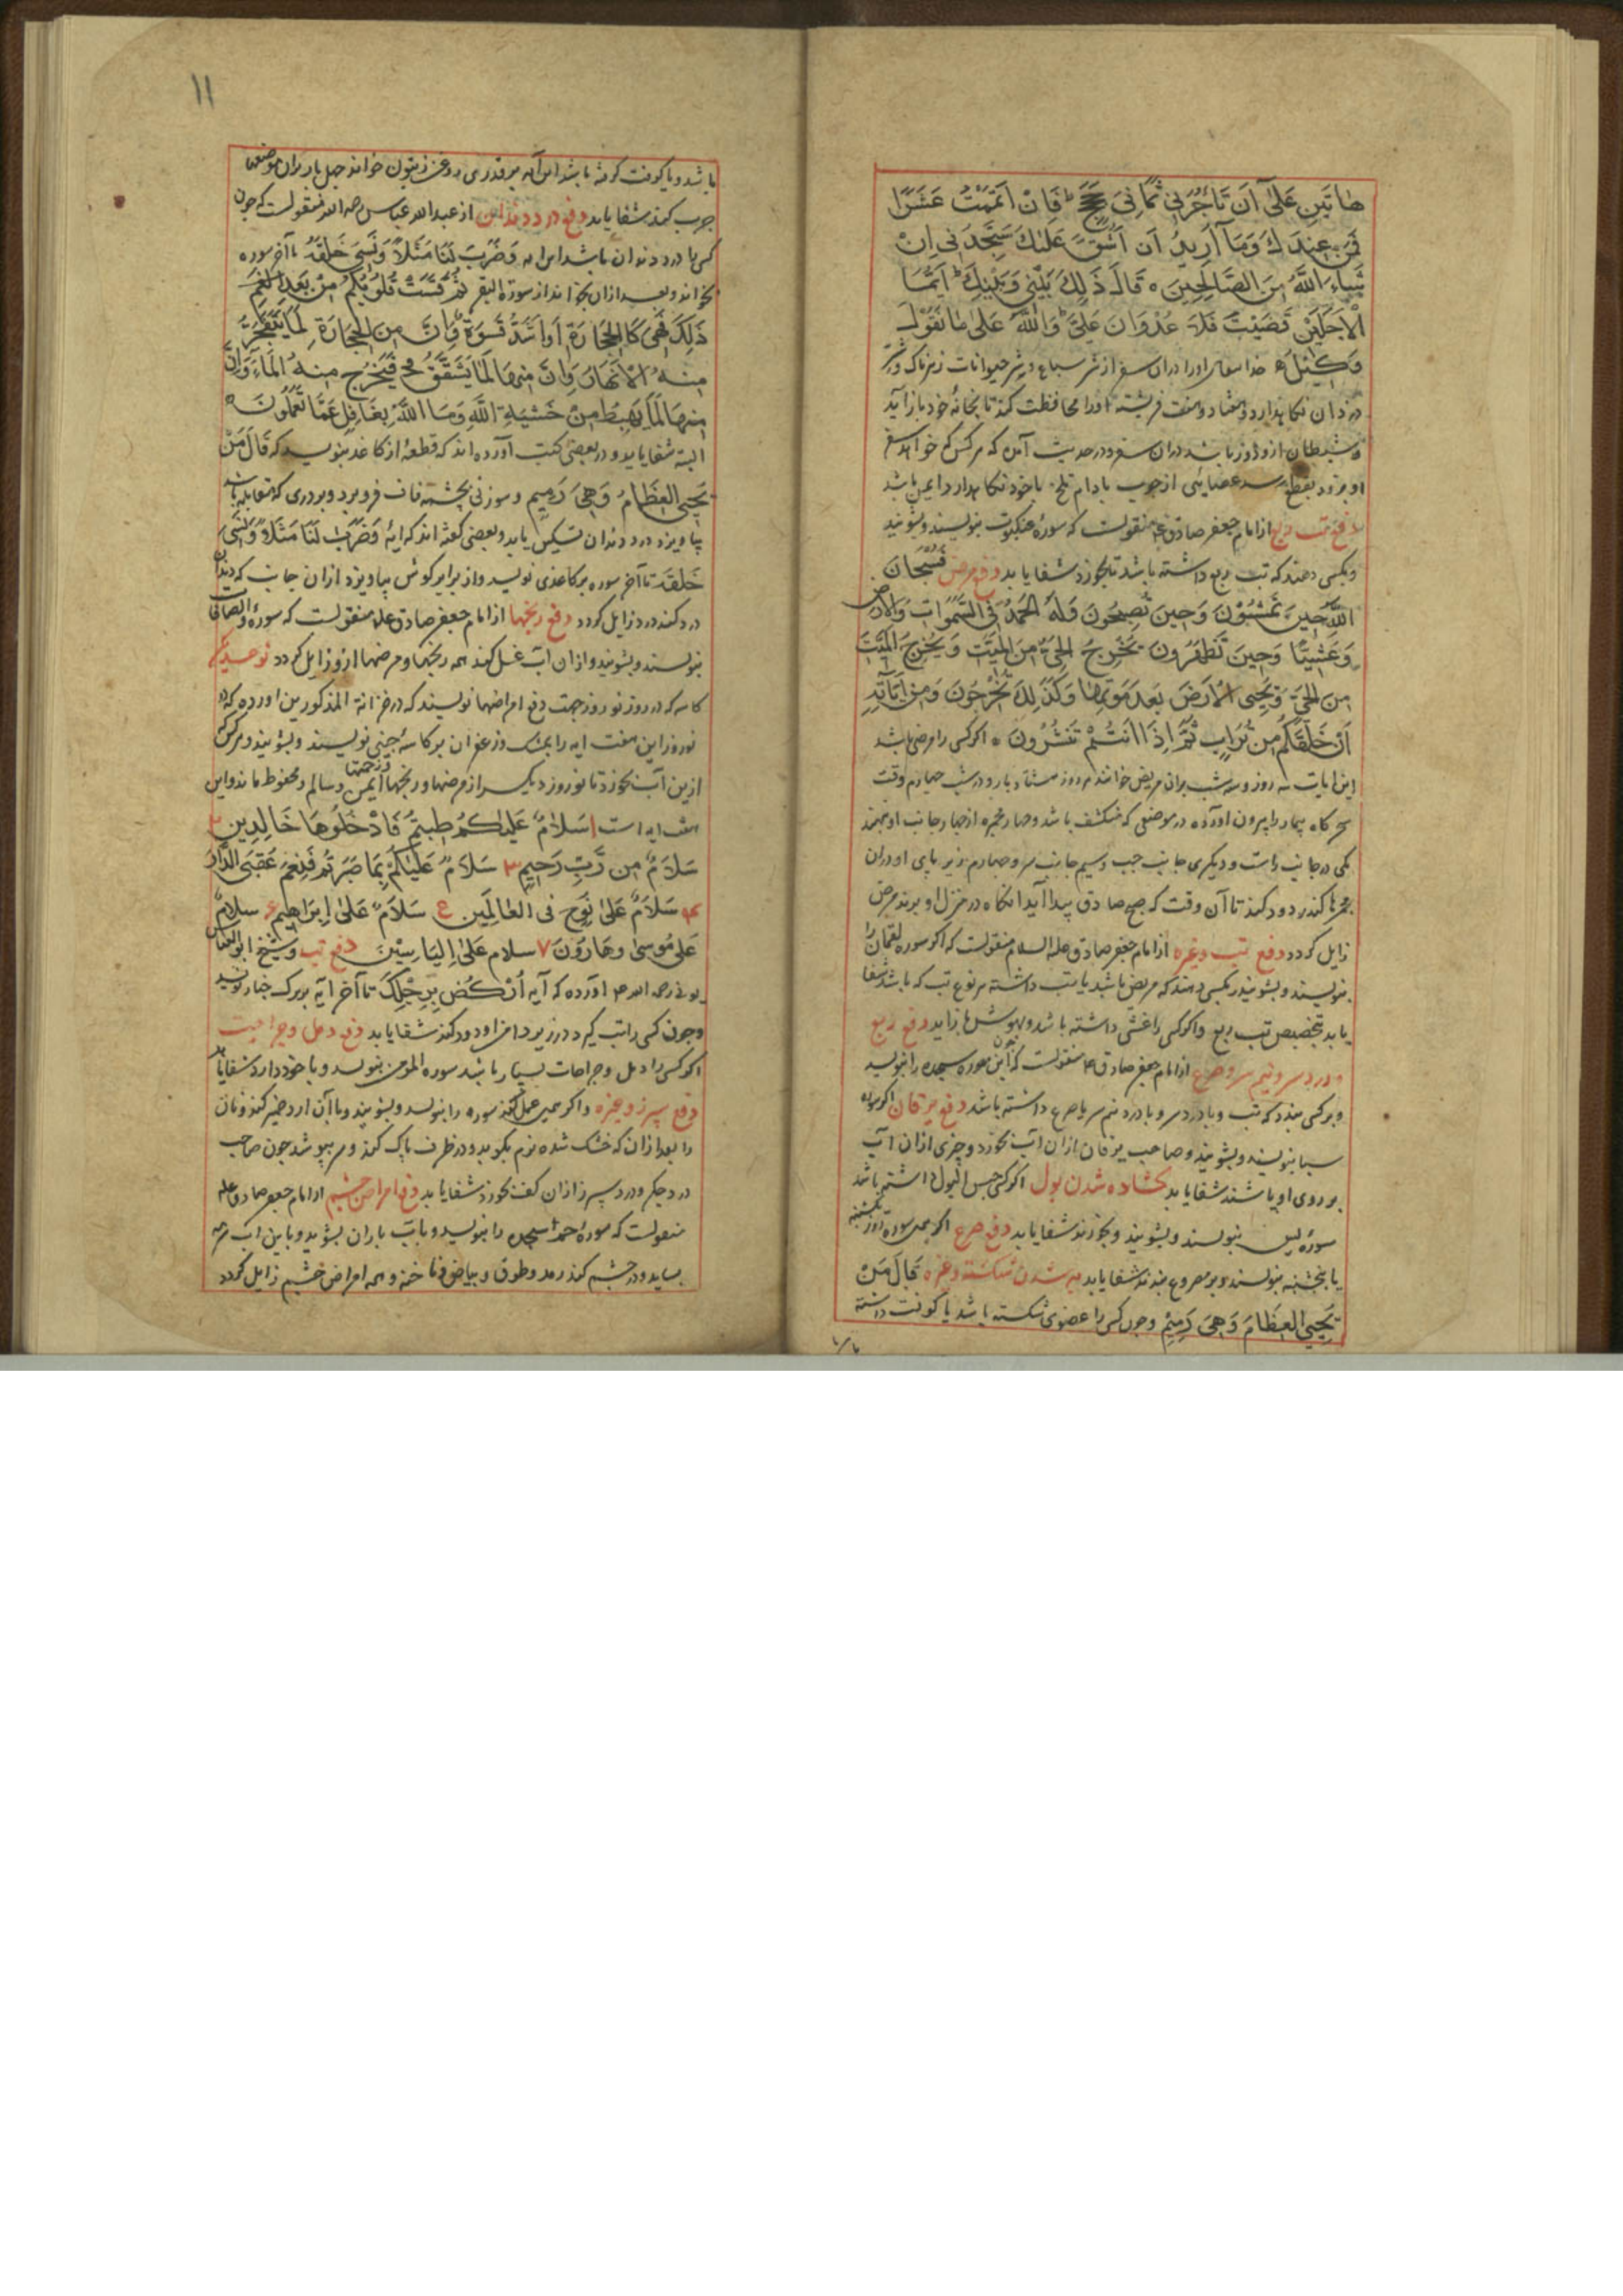 هَاتَينِ عَلىٰ اَن تَأجُرَنِي ثَمانِيَ حِجَجٍ فَاِنْ اَتمَمتَ عَشرًا
فَمِن عِندِكَ وَمَا اُرِيدُ اَن اَشُقَّ عَلَيكَ سَتَجِدُنِي اِنْ
شَاءَ اللّٰهُ مِنَ الصَّالِحِينَ قَالَ ذَلِكَ بَيْنِي وَبَيْنَكَ اَيَّمَا
الْاَجَلَيْنِ قَضَيْتُ فَلَا عُدْوَانَ عَلَيَّ وَاللّٰهُ عَلىٰ مَا نَقُولُ
وَكِيلٌ خدا تعالی او را در ان سفر از شر سباع و شر حیوانات زهرناک و شر
دزدان نکاهدارد و هفتاد و هفت فرشته او را محافظت کند تا بخانه خود باز آید
و شیطان ازو دور باشد در ان سفر و در حدیث آمده که هر کس که خواهد سفر
او برود عصایی از چوب بادام تلخ با خود نکاهدارد ایمن باشد
دفع تب ربع از امام جعفر صادق ع منقولست که سوره عنکبوت بنویسند و بشویند
و بکسی دهند که تب ربع داشته باشد تا بخورد شفا یابد دفع مرض فَسُبْحَانَ
اللّٰهِ حِينَ تُمْسُوْنَ وَحِينَ تُصبِحُونَ وَلَهُ الحَمدُ فِي السَّمٰوَاتِ وَالاَرضِ
وَعَشِيًّا وَحِينَ تُظهِرُونَ يُخرِجُ الحَيَّ مِنَ المَيِّتِ وَيُخرِجُ المَيِّتَ
مِنَ الحَيِّ وَيُحيِي الاَرضَ بَعدَ مَوتِهَا وَكَذٰلِكَ تُخْرَجُونَ وَمِن اٰيَاتِهِ
اَنْ خَلَقَكُم مِن تُرَابٍ ثُمَّ اِذَا اَنتُمْ تَنتَشِرُونَ اکر کسی را مرضی باشد
این ایات سه روز و سه شب بران مریض خوانند هر روز هشتاد بار و در شب چهارم وقت
سحرکاه بیمار را بیرون آورده در موضعی که منکشف باشد و چهار مجمره از چهار جانب او نهند
یکی در جانب راست و دیکری جانب چپ و سیم جانب سر و چهارم زیر پای او و دران
مجمرها کندر دود کنند تا آن وقت که صبح صادق پیدا آید انکاه در منزل او برند مرض
زایل کردد دفع تب و غیره از امام جعفر صادق علیه السلام منقولست که اکر سوره لقمان را
بنویسند و بشویند و بکسی دهند که مریض باشد یا تب داشته هر نوع تب که باشد شفا
یابد بتخصیص تب ربع و اکر کسی را غشی داشته باشد و بیهوش باز اید دفع ربع
و درد سر و نیم سر و صرع از امام جعفر صادق ع منقولست که چون این سوره سجده را بنویسد
و بر کسی بندد که تب و یا درد سر و یا درد نیم سر یا صرع داشته باشد دفع یرقان اکر سوره
سبا بنویسند و بشویند و صاحب یرقان ازان آب بخورد و چیزی ازان آب
بر روی او پاشند شفا یابد کشاده شدن بول اکر کسی حبس البول داشته باشد
سوره یس بنویسند و بشویند و بخورند شفا یابد دفع صرع اکر همین سوره روز یکشنبه
یا پنجشنبه بنویسند و بر مصروع بندند شفا یابد به شدن شکسته و غیره قَالَ مَنْ
يُحيِي العِظَامَ وَهِيَ رَمِيمٌ و چون کسی را عضوی شکسته باشد یا کوفت داشته
۱۱
باشد و یا کوفت کرفته باشد این آیه بر قدری روغن زیتون خواند چهل بار بران موضعها
چرب کند شفا یابد دفع درد دندان از عبد الله عباس رحمه الله منقولست که چون
کسی را درد دندان باشد این ایه وَضَرَبَ لَنَا مَثَلًا وَنَسِيَ خَلقَهُ تا آخر سوره
بخواند و بعد ازان بخواند از سورة البقر ثُمَّ قَسَتْ قُلُوبُكُم مِنْ بَعدِ
ذَلِكَ فَهِيَ كَالحِجَارَةِ اَو اَشَدُّ قَسوَةً وَاِنَّ مِنَ الحِجَارَةِ لَمَا يَتَفَجَّرُ
مِنهُ الاَنهَارُ وَاِنَّ مِنهَا لَمَا يَشَّقَّقُ فَيَخرُجُ مِنهُ المَاءُ وَاِنَّ
مِنهَا لَمَا يَهبِطُ مِنْ خَشيَةِ اللّٰهِ وَمَا اللّٰهُ بِغَافِلٍ عَمَّا تَعمَلُونَ
البته شفا یابد و در بعضی کتب آورده اند که قطعه از کاغذ بنویسد که قَالَ مَنْ
يُحيِي العِظَامَ وَهِيَ رَمِيم و سوزنی بچشمه ناف فرو برد و بر دری که مقابله باشد
بیاویزد درد دندان تسکین یابد و بعضی کفته اند که ایه وَضَرَبَ لَنَا مَثَلًا وَنَسِيَ
خَلقَهُ تا آخر سوره بر کاغذی نویسد و از برابر کوش بیاویزد ازان جانب که دندان
درد کند درد زایل کردد دفع رنجها از امام جعفر صادق علیه منقولست که سوره والصافات
بنویسند و بشویند و ازان آب غسل کنند همه رنجها و مرضها ازو زایل کردد
کاسه که در روز نوروز جهت دفع امراضها نویسند که در خزانة المذکورین اورده که در
نوروز این هفت ایه را بمشک و زعفران بر کاسه چینی نویسند و بشویند و هرکس
ازین آب بخورد تا نوروز دیکر از مرضها و رنجها و زحمتها ایمن و سالم و محفوظ ماند و این
هفت ایه است ۱ سَلَامٌ عَلَيكُم طِبتُم فَادْخُلُوهَا خَالِدِينَ ۲
سَلَامٌ مِن رَّبٍّ رَحِيمٍ ۳ سَلَامٌ عَلَيكُمْ بِمَا صَبَرتُم فَنِعمَ عُقبَى الدَّارِ
۴ سَلَامٌ عَلىٰ نُوحٍ فِي العَالَمِينَ ع سَلَامٌ عَلىٰ اِبرَاهِيمَ ۶ سلامٌ
عَلىٰ مُوسىٰ وهَارُونَ ۷ سلام عَلىٰ اِليَاسِيْنَ دفع تب و شیخ ابو العباس
بونی رحمه الله آورده که آیه اُرْكُض بِرِجلِكَ تا آخر ایه بر برک خیار نویسد
و چون کسی را تب کیرد در زیر دامن او دود کند شفا یابد دفع دمل و جراحت
اکر کسی را دمل و جراحات بسیار باشد سوره المؤمن بنویسد و با خود دارد شفا یابد
دفع سپرز و غیره و اکر همین عمل کنند سوره را بنویسد و بشویند و با آن ارد خمیر کنند و نان
را بعد ازان که خشک شده نرم بکوبد و در ظرف پاک کند و سر بپوشد چون صاحب
درد جکر و درد سپرز ازان کفت بخورد شفا یابد دفع امراض چشم از امام جعفر صادق علیه
منقولست که سوره حم السجده را بنویسد و باب باران بشوید و با این اب سرمه
بساید و در چشم کند رمد و طرق و بیاض و ناخنه و همه امراض چشم زایل کردد